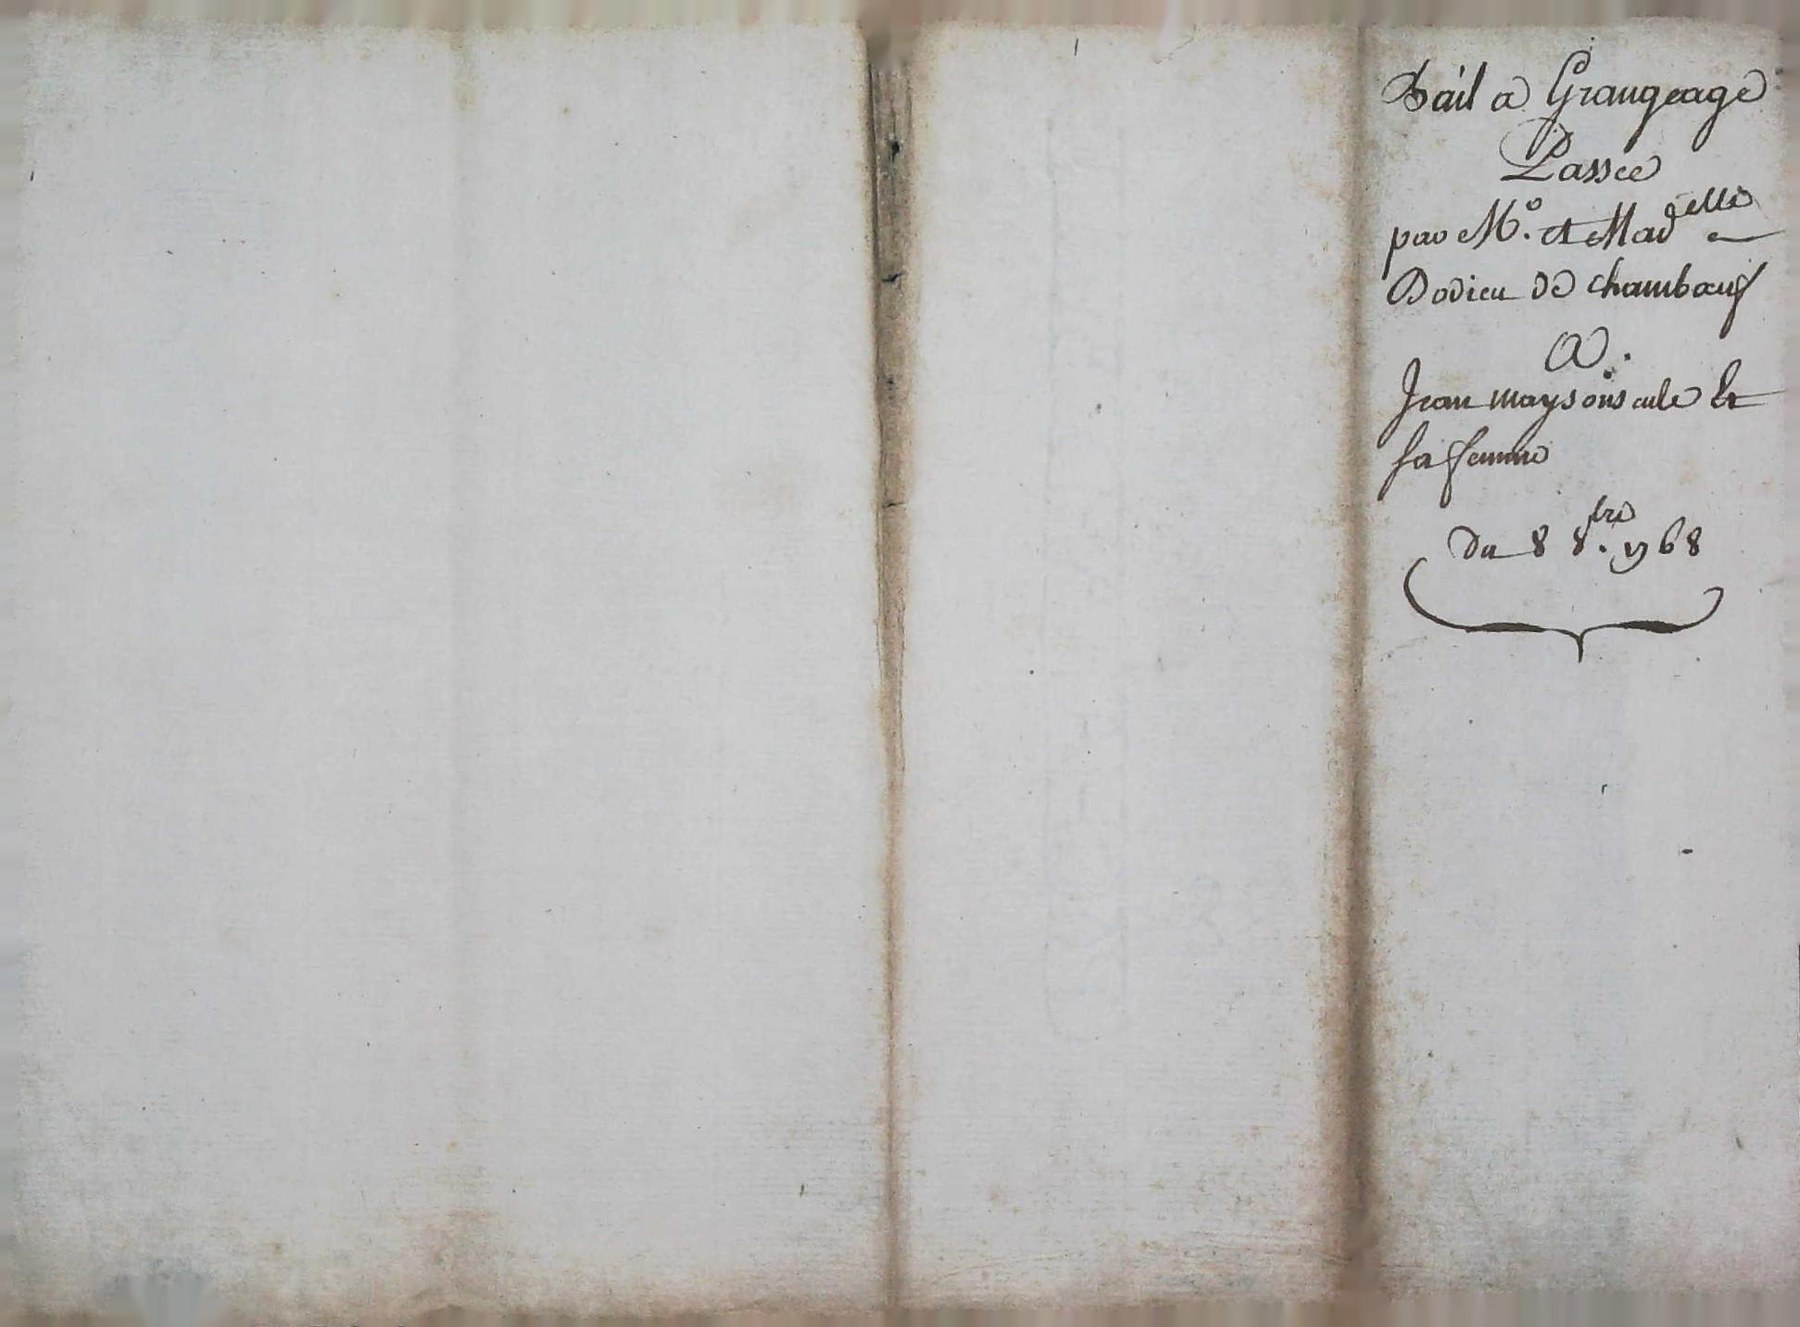 Bail a Grangeage
Passee
par Mr. et Madelle
Dodieu de chambœuf
A.
Jean maysonseule Et
sa femme
du 8 8bre. 1768